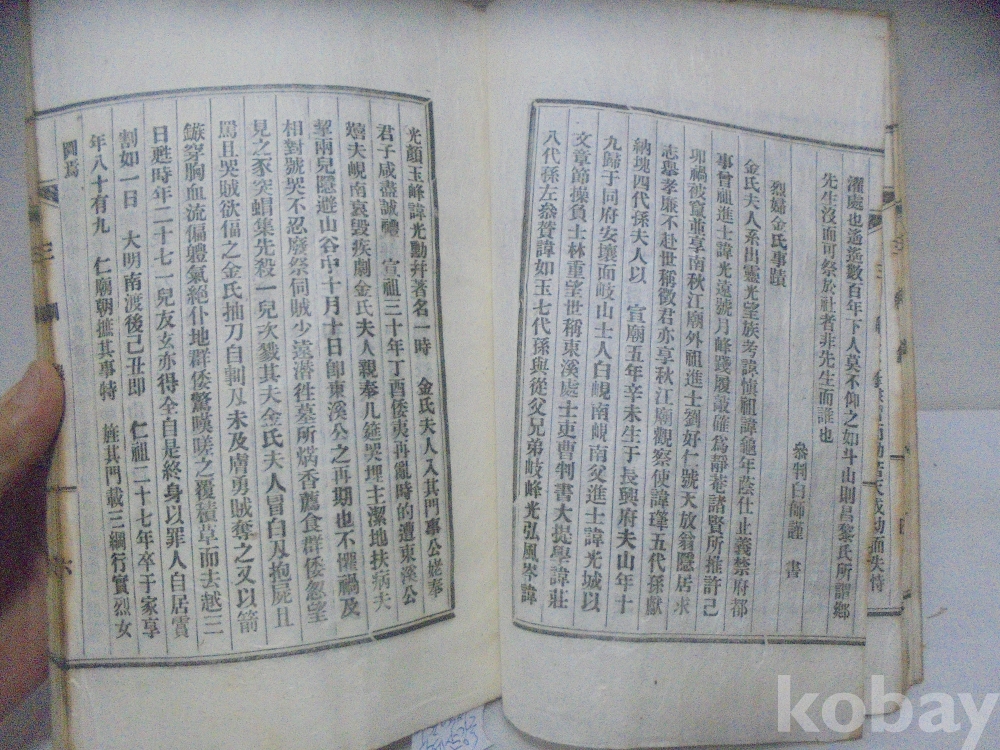 濯處也遙遙數百年下人莫不仰之如斗山則昌黎氏所謂鄉
先生沒而可祭於社者非先生而誰也
叅判白師謹 書
烈婦金氏事蹟
金氏夫人系出靈光望族考諱愼祖諱龜年蔭仕止義禁府都
事曾祖進士諱光遠號月峰踐履最確爲靜菴諸賢所推許己
卯禍被竄並享南秋江廟外祖進士劉好仁號天放翁隱居求
志擧孝廉不赴世稱徵君亦享秋江廟觀察使諱蓬五代孫獻
納塊四代孫夫人以 宣廟五年辛未生于長興府夫山年十
九歸于同府安壤面岐山士人白峴南峴南父進士諱光城以
文章節操負士林重望世稱東溪處士吏曹判書大提學諱莊
八代孫左叅贊諱如玉七代孫與從父兄弟岐峰光弘風岑諱
光顏玉峰諱光勳幷著名一時 金氏夫人入其門事公姥奉
君子咸盡誠禮 宣祖三十年丁酉倭夷再亂時的遭東溪公
喪夫峴南哀毀疾劇金氏夫人親奉几筵哭埋主潔地扶病夫
挈兩兒隱避山谷中十月十日卽東溪公之再期也不懼禍及
相對號哭不忍廢祭伺賊少遠潛徃墓所焫香薦食群倭忽望
見之豕突蝟集先殺一兒次戮其夫金氏夫人冒白刄抱屍且
罵且哭賊欲偪之金氏抽刀自剄刄未及膚勇賊奪之又以箭
鏃穿胸血流偏體氣絕仆地群倭驚嘆嗟之覆積草而去越三
日甦時年二十七一兒友玄亦得全自是終身以罪人自居實
割如一日 大明南渡後己丑卽 仁祖二十七年卒于家享
年八十有九 仁廟朝摭其事特 旌其門載三綱行實烈女
圖焉
三
六
kobay